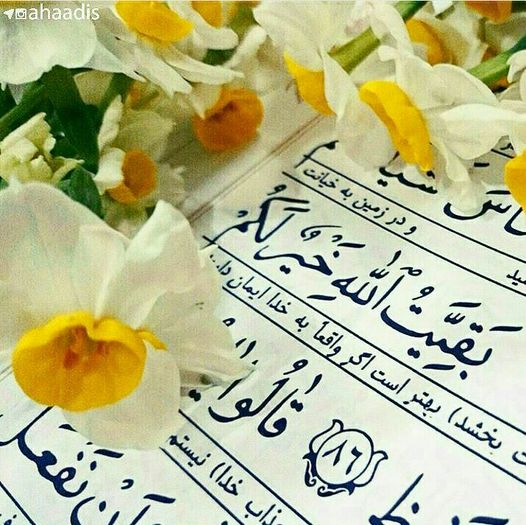 ahaadis
و در زمین به خیانت
بَقِیَّتُ اللهِ خَیْرٌ لَکُمْ
بخشد) بهتر است اگر واقعاً به خدا ایمان
قَالُوا
۸۶
عذاب خدا) نیستم